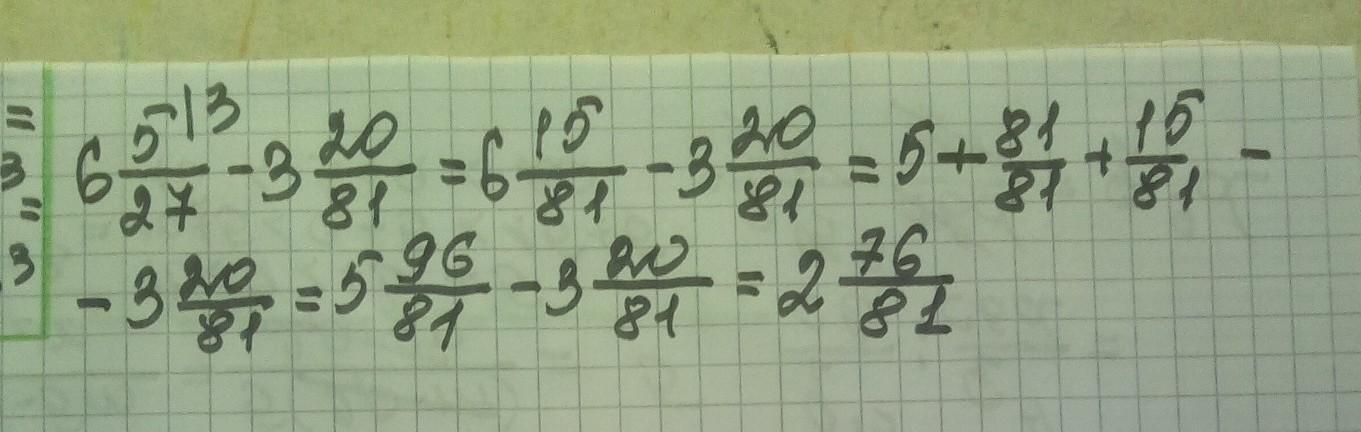 6 5|3/27 - 3 20/81 = 6 15/81 - 3 20/81 = 5 + 81/81 + 15/81 -
- 3 20/81 = 5 96/81 - 3 20/81 = 2 76/81
=
3
=
3